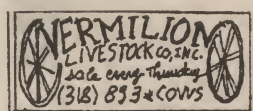 VERMILION
LIVESTOCK CO, INC.
sale every Thursday
(318) 893*COWS